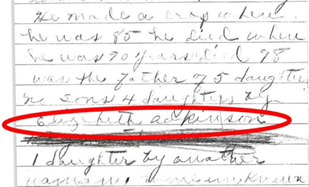 he made a crop when
he was 85 he died when
he was 90 years died 98
was the father of 5 daughters
no sons 4 daughters by
Elizabeth adkinson
1 daughter by another
woman